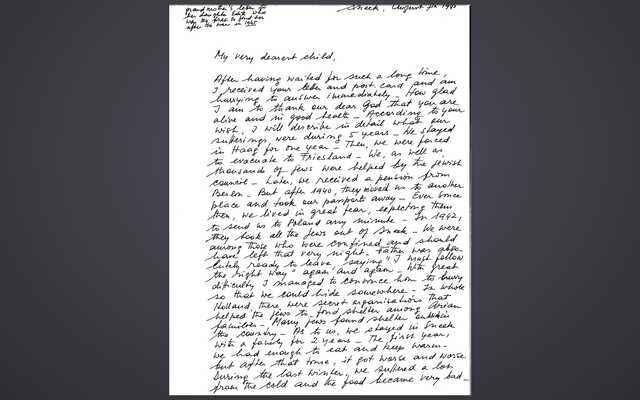 grandmother's letter to
her daughter Edith who
was the first to find her
after the war in 1945
Sneek, August 7th 1945
My very dearest child,
After having waited for such a long time,
I received your letter and post card and am
hurrying to answer immediately - How glad
I am to thank our dear God that you are
alive and in good health - According to your
wish, I will describe in detail what our
sufferings were during 5 years - We stayed
in Haag for one year - Then, we were forced
to evacuate to Friesland - We, as well as
thousands of Jews were helped by the Jewish
council - Later, we received a pension from
Berlin - But after 1940, they moved us to another
place and took our passports away - Ever since
then, we lived in great fear, expecting them
to send us to Poland any minute - In 1942,
they took all the Jews out of Sneek - We were
among those who were confined and should
have left that very night. Father was abso-
lutely ready to leave, saying "I must follow
the right way" again and again - With great
difficulty I managed to convince him to hurry
so that we could hide somewhere - In whole
Holland, there were secret organisations that
helped the Jews to find shelter among Arian
families - Many Jews found shelter within
the country - As to us, we stayed in Sneek
with a family for 2 years - The first year,
we had enough to eat and keep warm -
but after that time, it got worse and worse.
During the last winter, we suffered a lot
from the cold and the food became very bad -